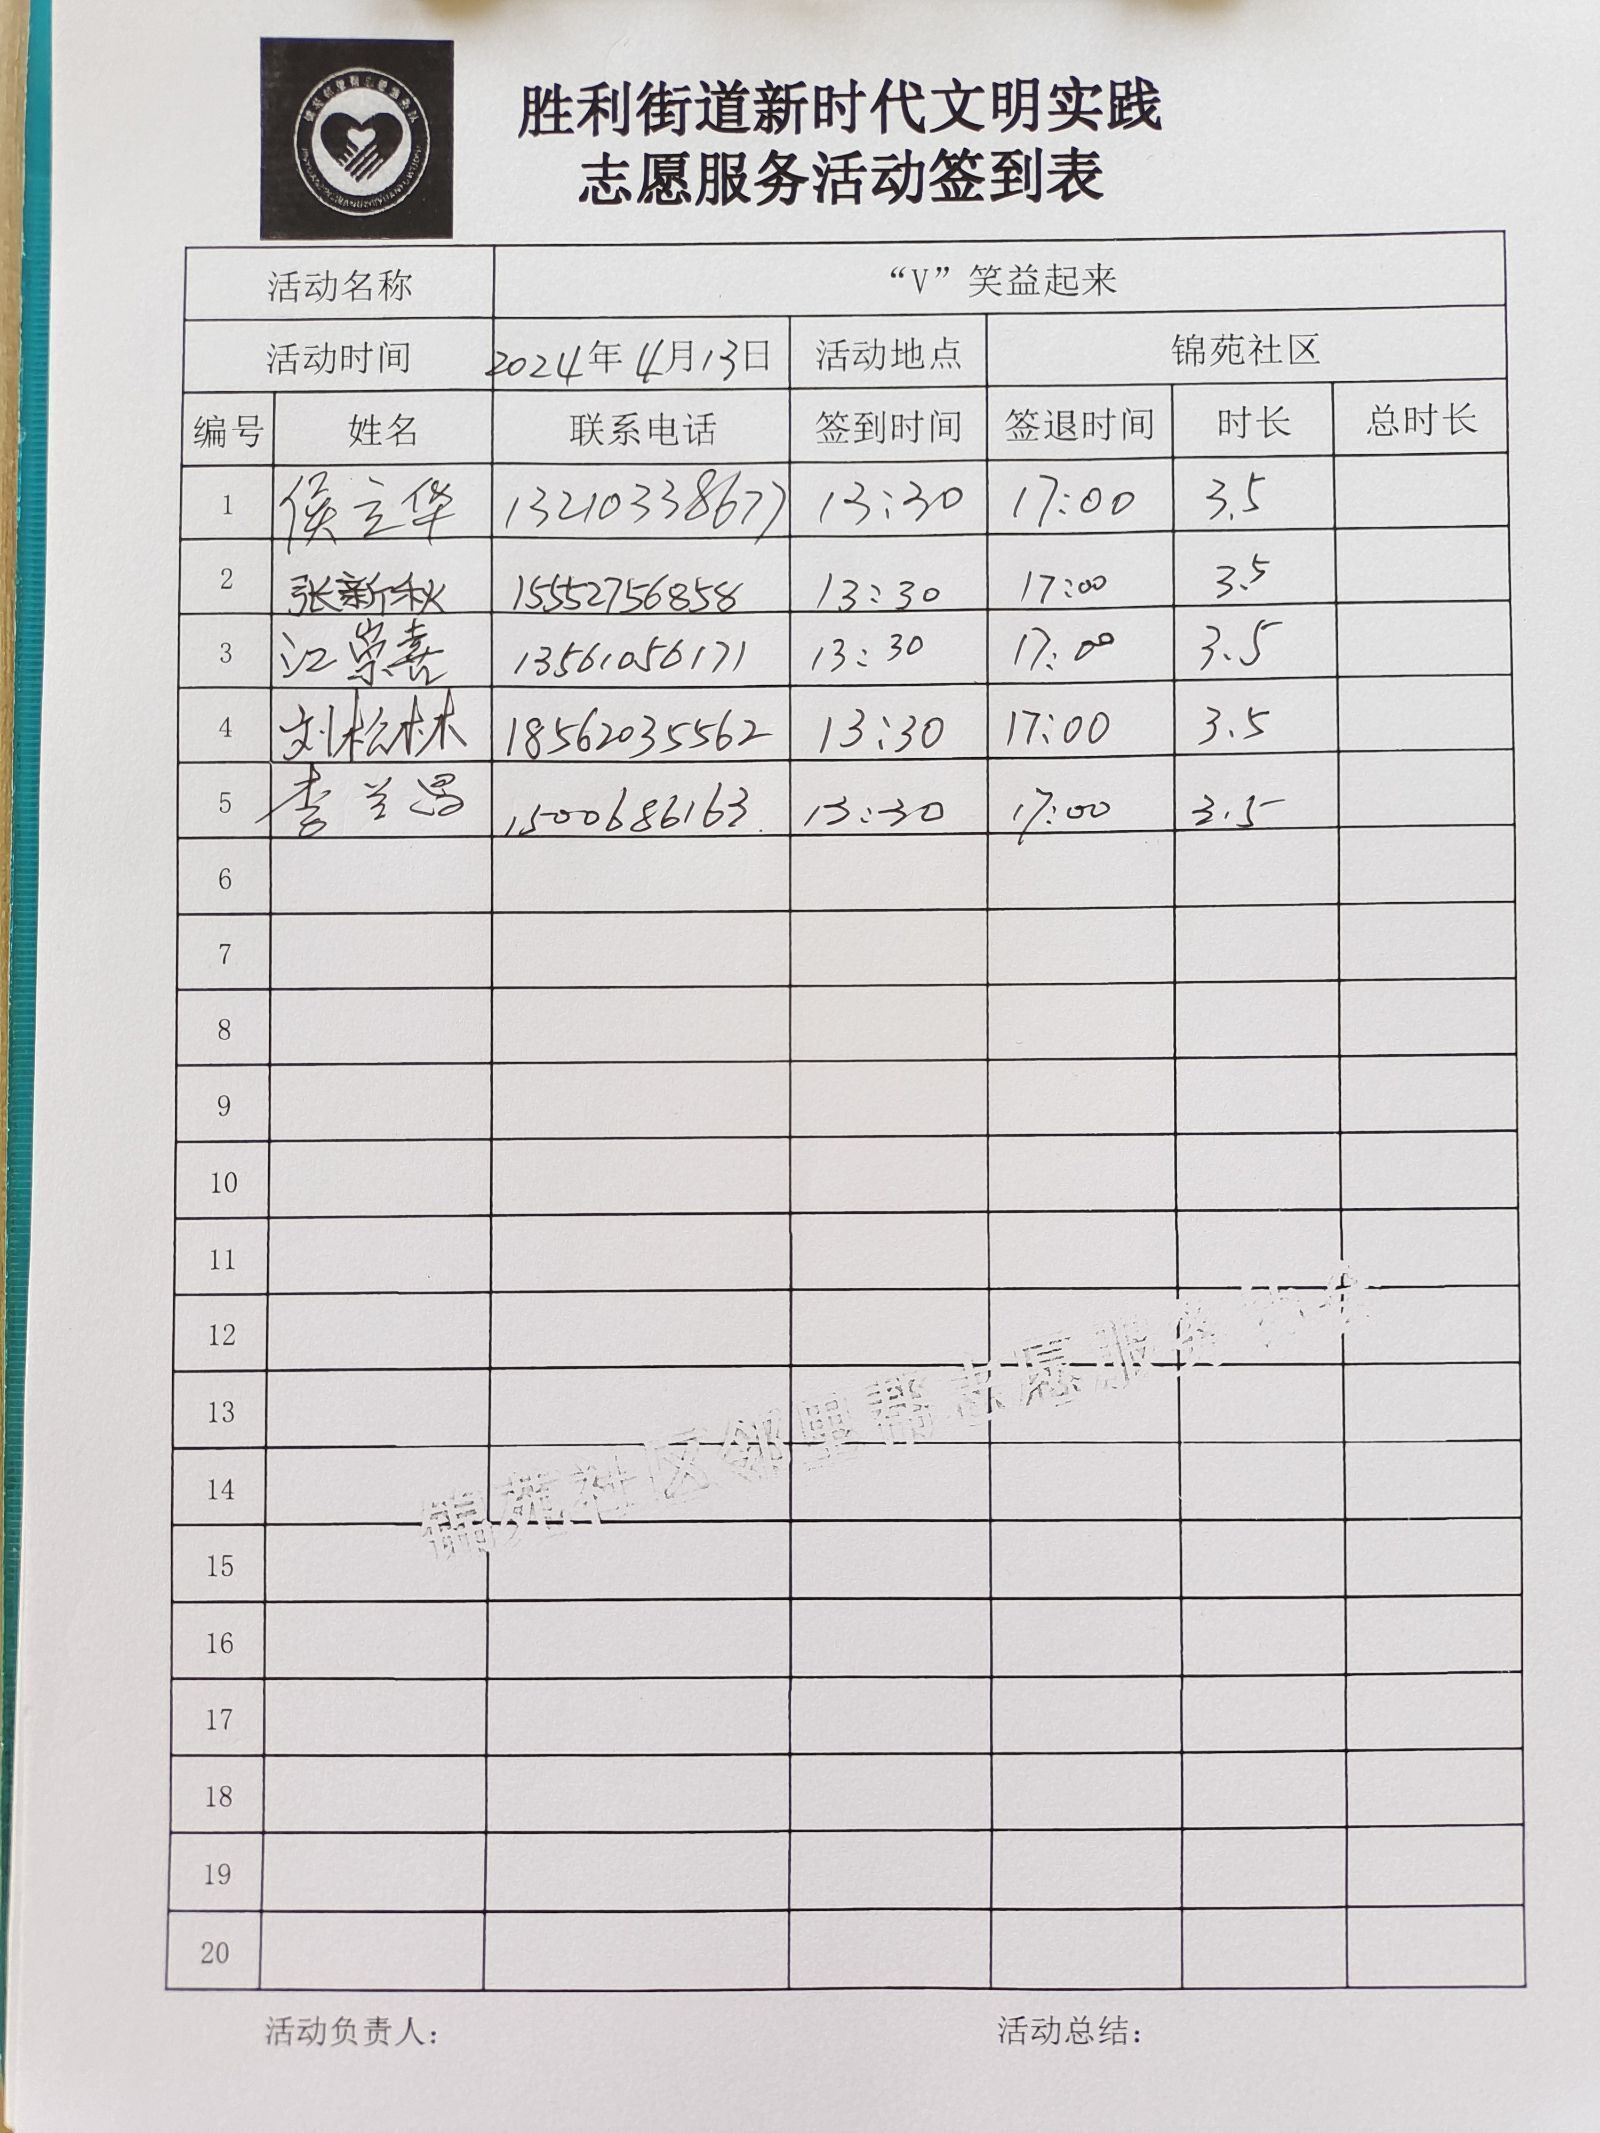 胜利街道新时代文明实践
志愿服务活动签到表
活动名称 “V”笑益起来
活动时间 2024年4月13日 活动地点 锦苑社区
编号 姓名 联系电话 签到时间 签退时间 时长 总时长
1 侯立华 13210338677 13:30 17:00 3.5
2 张新秋 15552756858 13:30 17:00 3.5
3 江崇喜 13561056171 13:30 17:00 3.5
4 刘松林 18562035562 13:30 17:00 3.5
5 李兰昌 1500686163 13:30 17:00 3.5
6
7
8
9
10
11
12
13
14
15
16
17
18
19
20
锦苑社区邻里帮志愿服务
活动负责人： 活动总结：